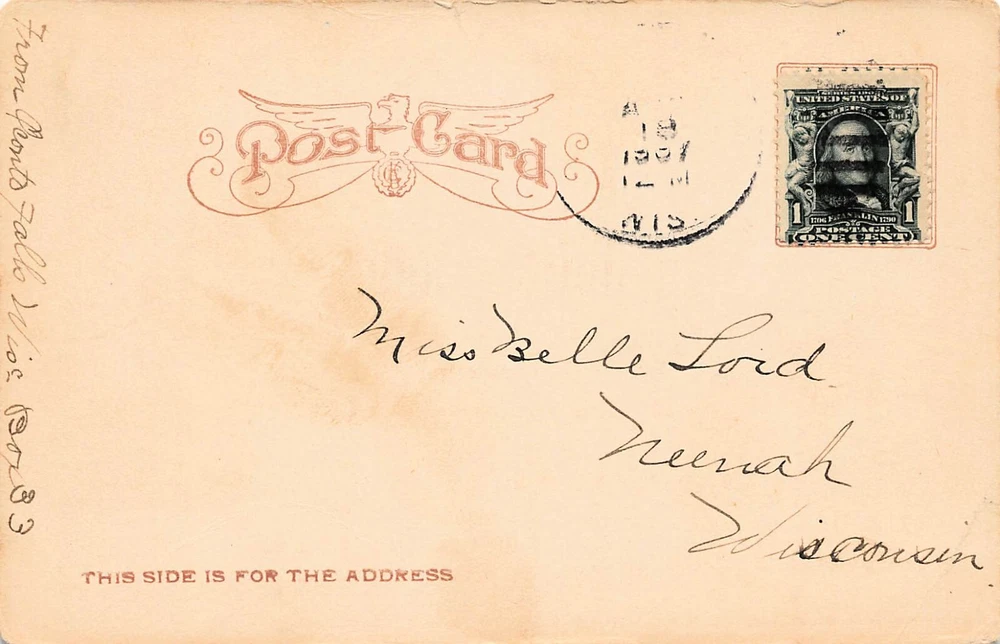 Post Card
A
18
1907
12 M
WIS.
SERIES 1902
UNITED STATES OF
AMERICA
1 1706 FRANKLIN 1790 1
POSTAGE
ONE CENT
Miss Belle Lord
Neenah
Wisconsin
THIS SIDE IS FOR THE ADDRESS
From Oconto Falls Wis. Box 33